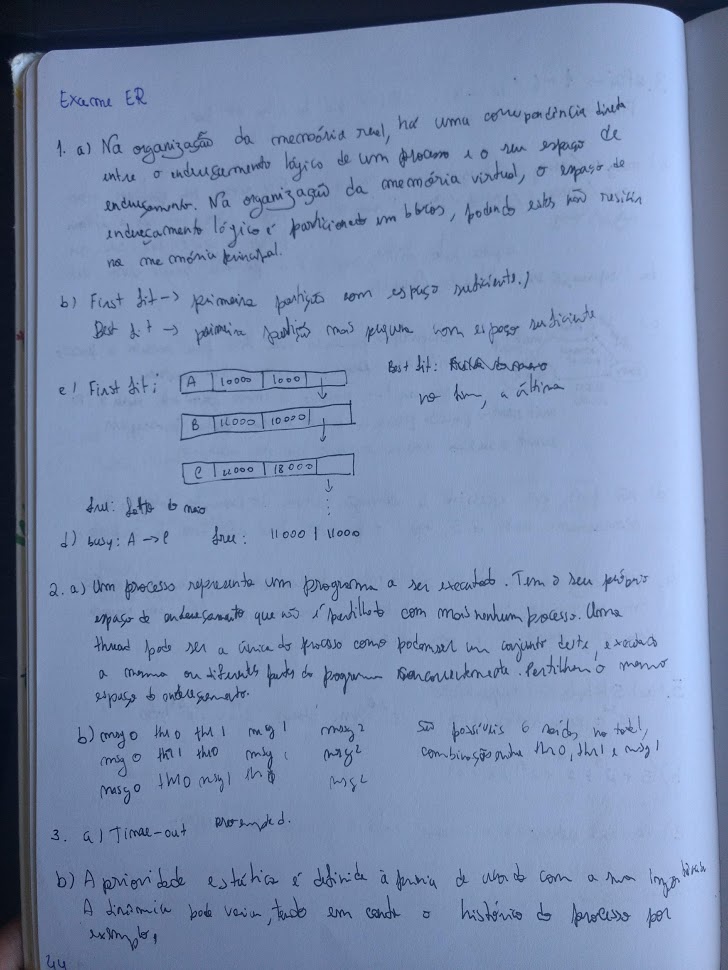 Exame ER
1. a) Na organização da memória real, há uma correspondência direta
entre o endereçamento lógico de um processo e o seu espaço de
endereçamento. Na organização da memória virtual, o espaço de
endereçamento lógico é particionado em blocos, podendo estes não residir
na memória principal.
b) First fit -> primeira partição com espaço suficiente.
Best fit -> primeira partição mais pequena com espaço suficiente
c) First fit:
A 10000 1000
B 11000 10000
C 18000
Best fit:
no fim, a última
free:
d) busy: A -> C free: 11000 | 11000
2. a) Um processo representa um programa a ser executado. Tem o seu próprio
espaço de endereçamento que não é partilhado com mais nenhum processo. Uma
thread pode ser a única do processo como podem ser um conjunto deste,
a mesma ou diferentes partes do programa concorrentemente. Partilham o mesmo
espaço de endereçamento.
b) msg0 th0 th1 msg1 msg2
msg0 th1 th0 msg1 msg2
msg0 th0 msg1 msg2
São possíveis 6 saídas no total,
combinação entre th0, th1 e msg1
3. a) Time-out preempted.
b) A prioridade estática é definida à de acordo com a sua
A dinâmica pode variar, tendo em conta o histórico do processo por
exemplo.
44